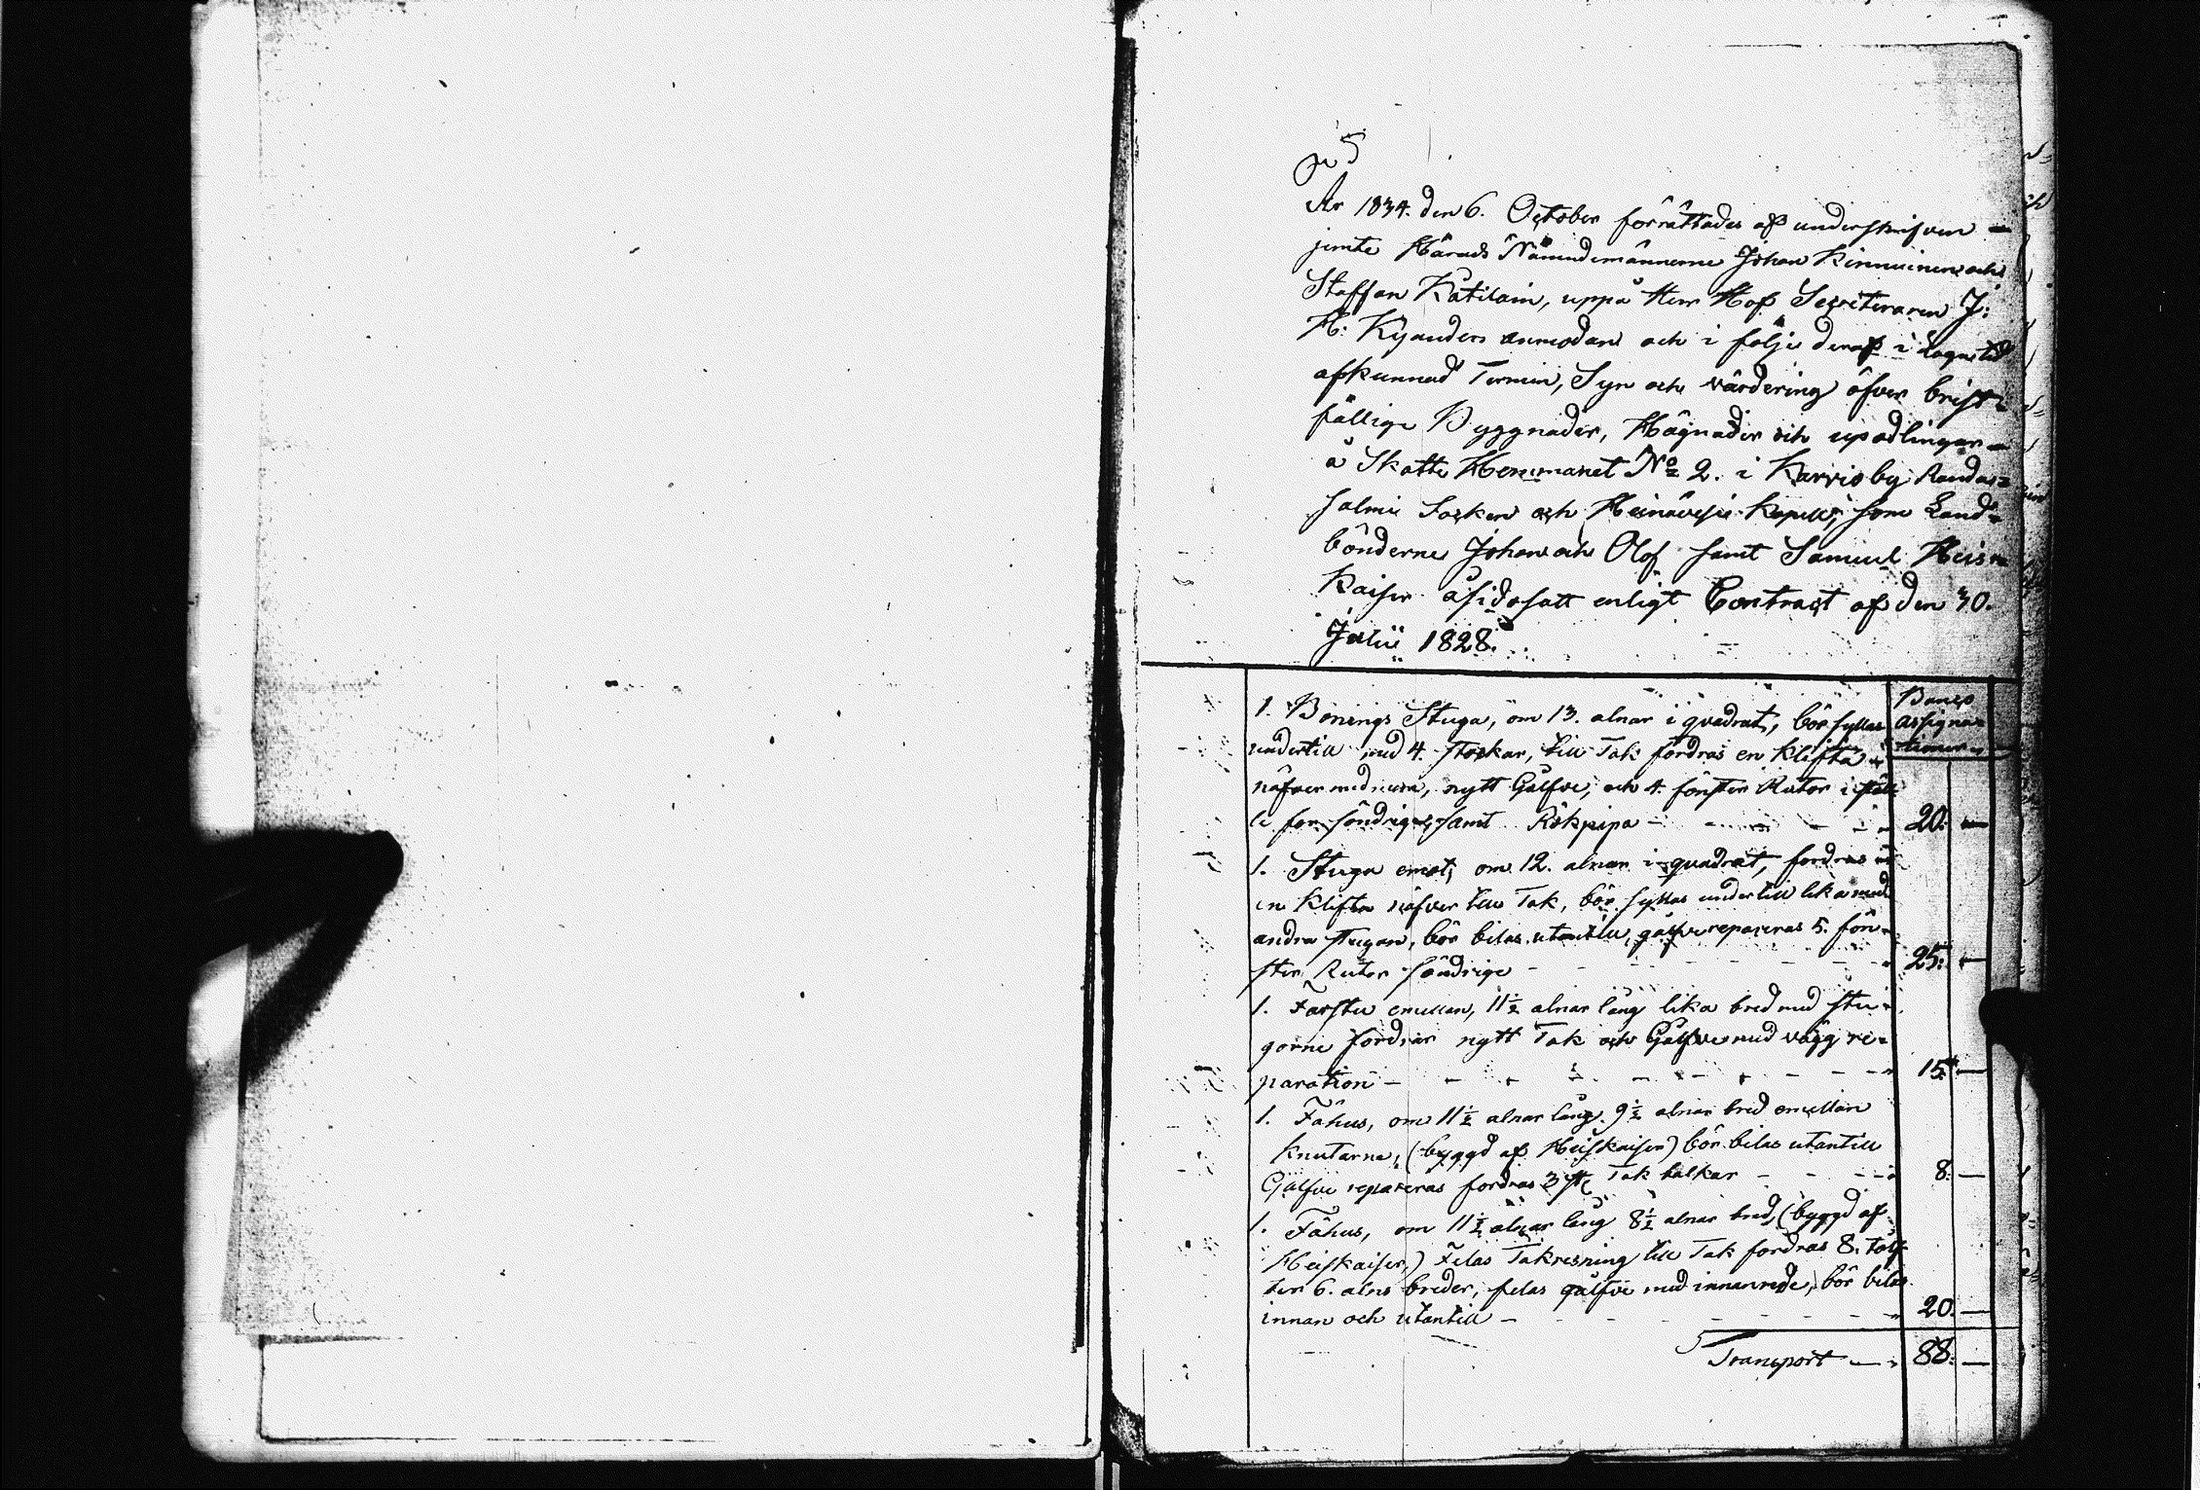 År 1834. den 6. October förrättades af underskrifven
jemte Härads Nämndemännerne Johan Kinnuinen och
Staffan Katilain, uppå Herr Hof Secreteraren J:
H: Kyanders anmodan och i följe deraf i lagastid
afkunnad Termin, Syn och värdering öfver brist-
fällige Byggnader, Hägnader och upodlingar
å Skatte Hemmanet No 2. i Karvio by Randa-
salmi Socken och Heinävesi Kapell, som Land-
bönderne Johan och Olof samt Samuel Heis-
kaiser åsidosatt enligt Contract af den 30.
Julii 1828.
Banco
assigna-
tioner
1. Bonings Stuga, om 13. alnar i qvadrat, bör fyllas
undertill med 4. stockar, till Tak fordras en Klifta
näfver med mera, nytt Gålfve, och 4. fönster Rutor i stäl-
le for söndrige, samt Rökpipa - - - 20: —
1. Stuga emot, om 12. alnar i qvadrat, fordras
en Klifta näfver till Tak, bör fyllas undertill lika med
andra stugan, bör bilas utantill, gålfve repareras 5. fön-
ster Rutor söndrige - - - 25: —
1. Farstu emellan, 11½ alnar lång lika bred med stu-
gorne fordrar nytt Tak och Gålfve med vägg re-
paration - - - 15: —
1. Fähus, om 11½ alnar lång. 9½ alnar bred emellan
knutarne, (byggd af Heiskaiser) bör bilas utantill
Gålfve repareras fordras 3 st: Tak balkar - - - 8: —
1. Fähus, om 11½ alnar lång 8½ alnar bred, (byggd af
Heiskaiser,) Felas Takresning till Tak fordras 8. tolf-
ter 6. alns breder, felas gålfve med innanrede, bör bilas
innan och utantill - - - 20: —
Transport — 88: —